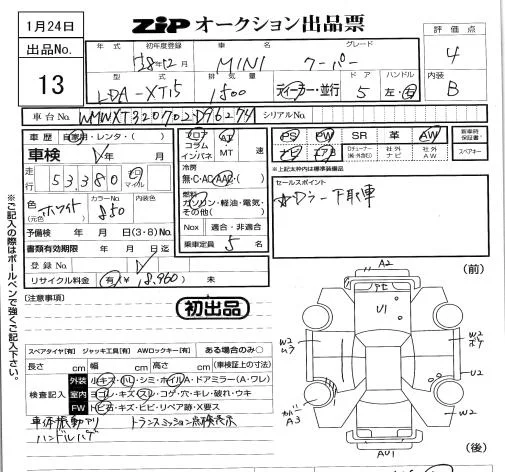 1月24日
ZiP オークション出品票
出品No.
13
年式 初年度登録 車名 グレード
'28年12月 MINI クーパー
型式 排気量 ドア ハンドル
LDA-XT15 1500 ディーラー・並行 5 左・右
評価点
4
内装
B
車台No. WMWXT320702D96274 シリアルNo.
車歴 自家用・レンタ・( )
車検 年 月
走行 53,380 キロ マイル
色(元色) ホワイト カラーNo. 850 内装色
予備検 年 月 日(3・8)No.
書類有効期限 年 月 日迄
登録No.
リサイクル料金 有(¥ 18,960) 未
フロア コラム インパネ AT MT 速
冷房 無・C・AC・AAC・( )
燃料 ガソリン・軽油・電気・その他( )
Nox 適合・非適合
乗車定員 5 名
PS PW SR 革 AW
ナビ エアB 社外ナビ 社外AW
新車時保証書
スペアキー
※上記太枠内は標準装備品
セールスポイント
☆Dラー下取車
※ご記入の際はボールペンで強くご記入下さい。
[注意事項]
初出品
スペアタイヤ[有] ジャッキ工具[有] AWロックキー[有] ある場合のみ○
長さ cm 幅 cm 高さ cm (車検証上の寸法)
検査記入
外装 小キズ・凹・シミ・ホイルA・ドアミラー(A・ワレ)
室内 ヨゴレ・キズ・スレ・コゲ・穴・キレ・破れ・ウキ
FW トビ石・キズ・ヒビ・リペア跡・X要ス
車体振動アリ トランスミッション点検表示
ハンドルハゲ
(前)
A2
U1
W2
W2
U2
W2
A3
AU1
(後)